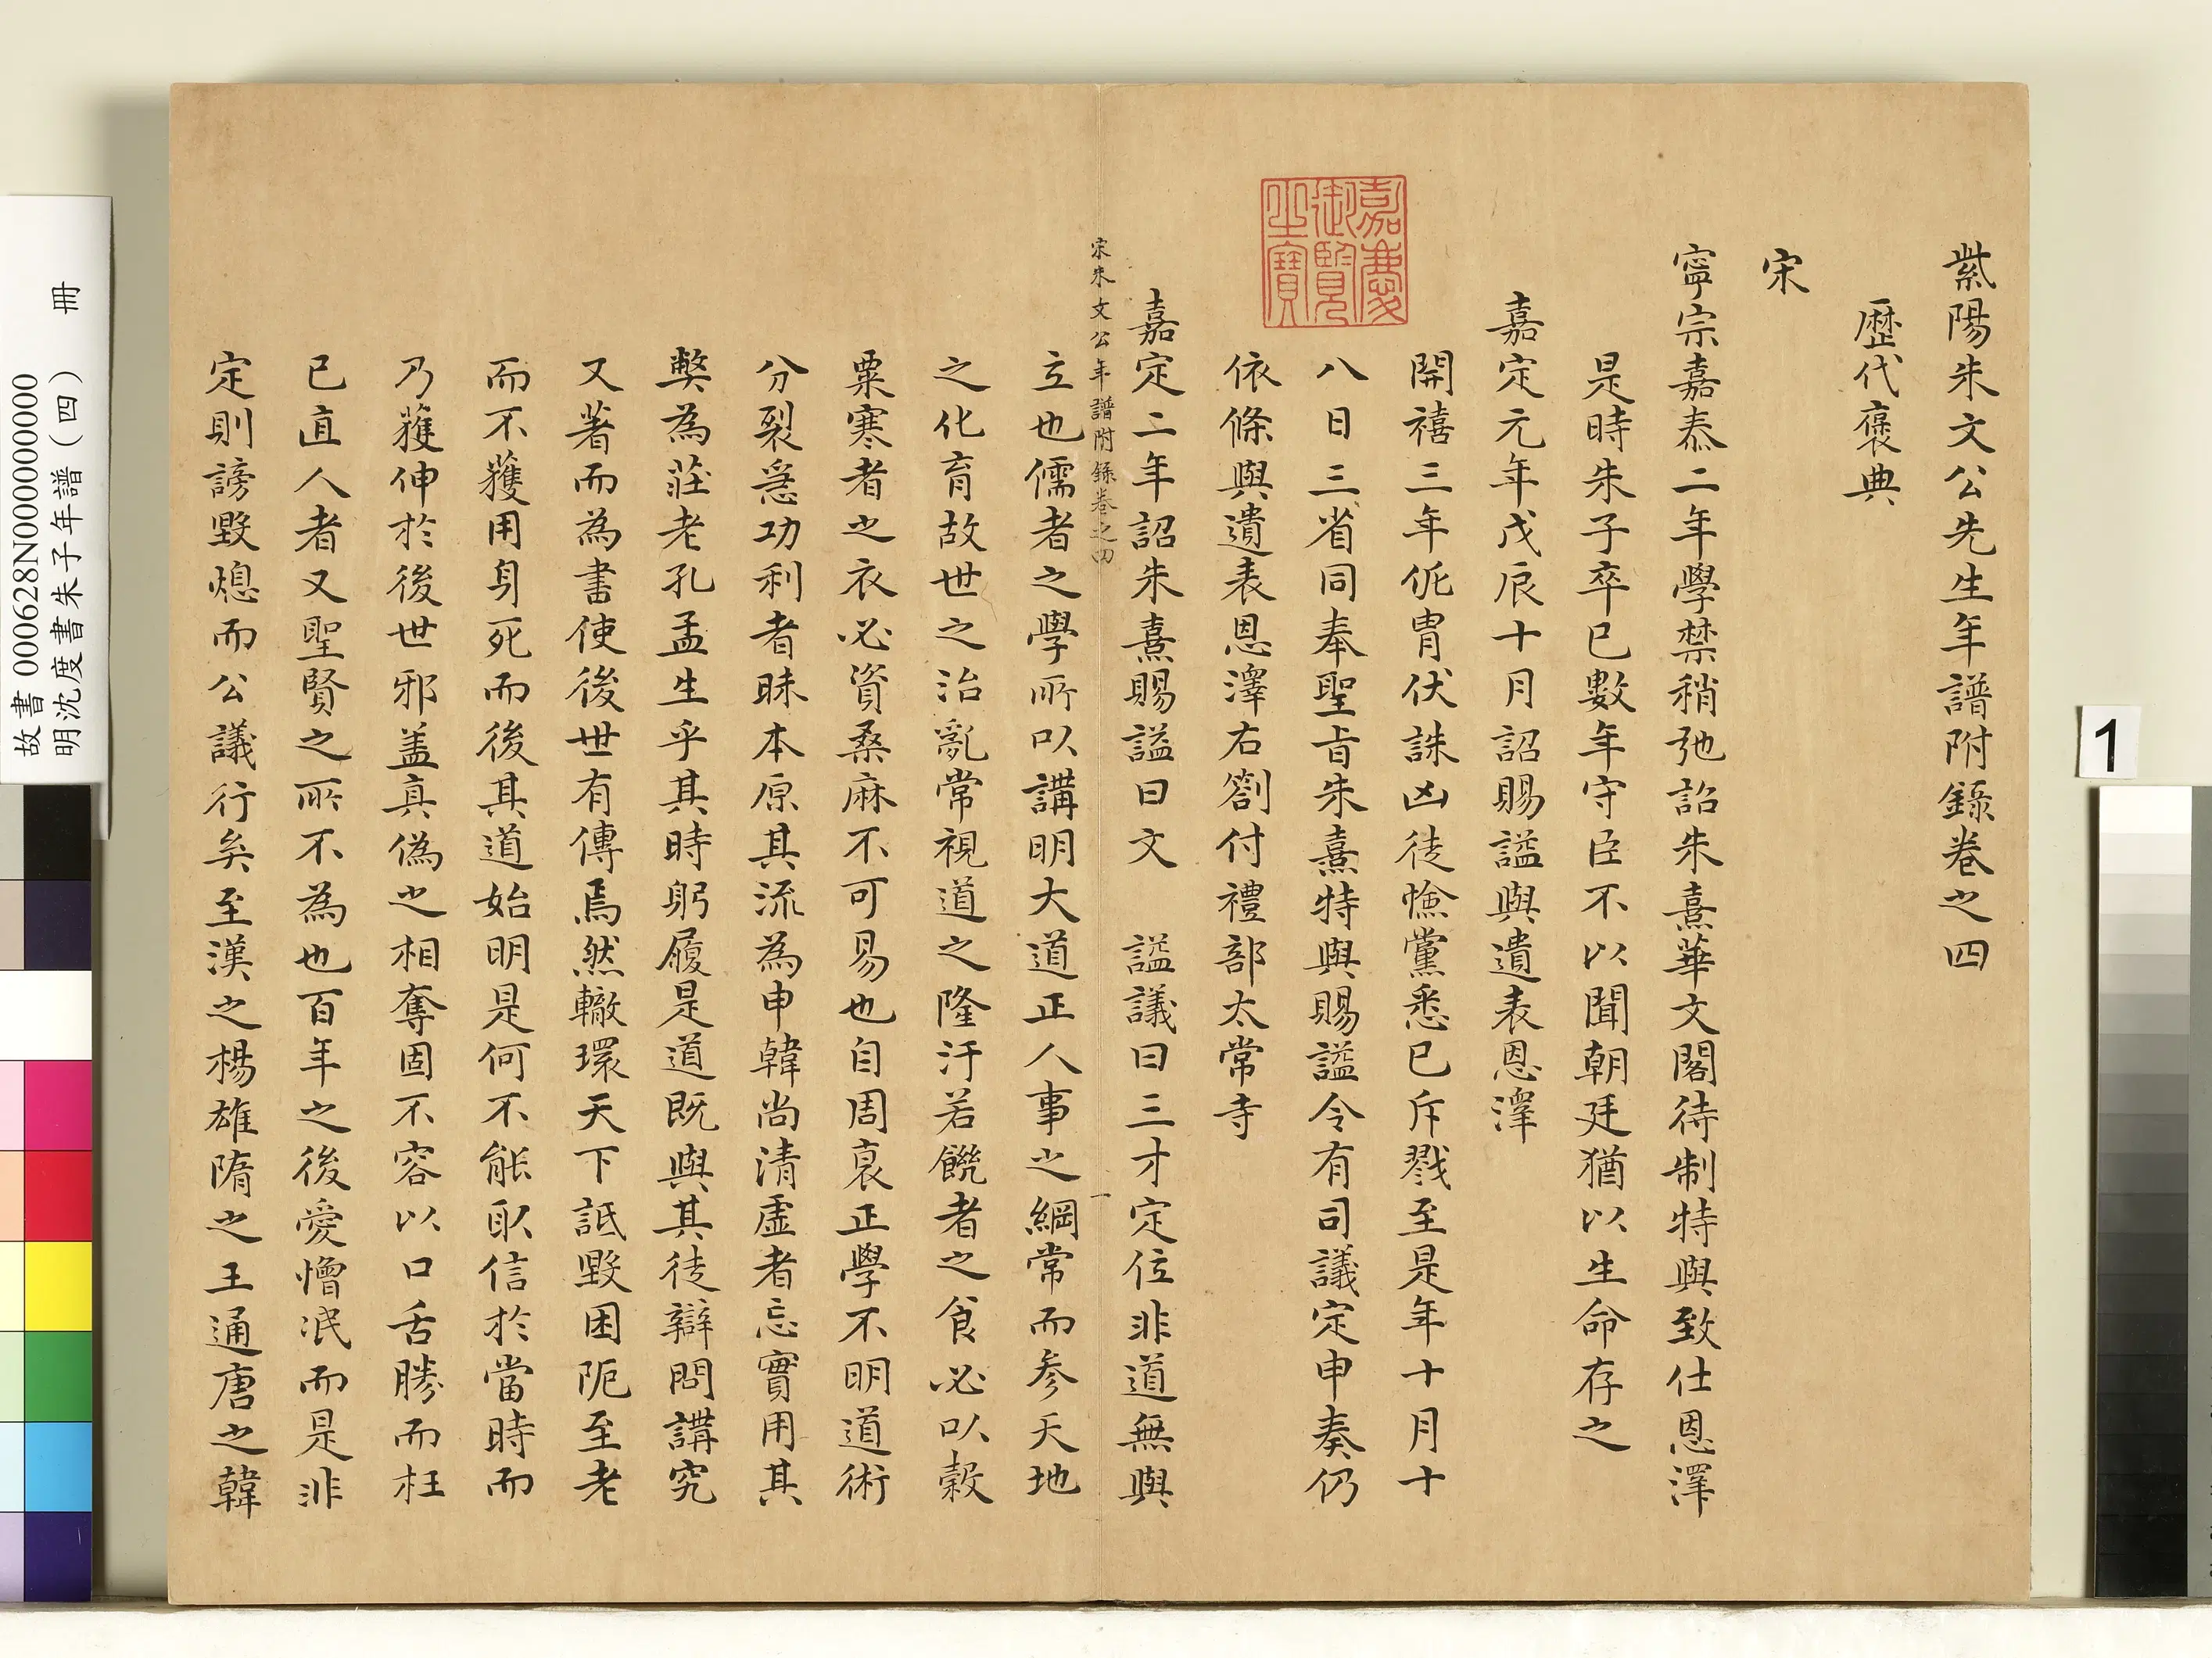 紫陽朱文公先生年譜附錄卷之四
歷代褒典
宋
寧宗嘉泰二年學禁稍弛詔朱熹華文閣待制特與致仕恩澤
是時朱子卒已數年守臣不以聞朝廷猶以生命存之
嘉定元年戊辰十月詔賜諡與遺表恩澤
開禧三年侂冑伏誅凶徒憸黨悉已斥戮至是年十月十
八日三省同奉聖旨朱熹特與賜諡令有司議定申奏仍
依條與遺表恩澤右劄付禮部太常寺
嘉定二年詔朱熹賜諡曰文 諡議曰三才定位非道無與
宋朱文公年譜附錄卷之四 一
立也儒者之學所以講明大道正人事之綱常而参天地
之化育故世之治亂常視道之隆汙若饑者之食必以穀
粟寒者之衣必資桑麻不可易也自周衰正學不明道術
分裂急功利者昧本原其流為申韓尚清虛者忘實用其
獘為莊老孔孟生乎其時躬履是道既與其徒辯問講究
又著而為書使後世有傳焉然轍環天下詆毀困阨至老
而不獲用身死而後其道始明是何不能取信於當時而
乃獲伸於後世邪盖真偽之相奪固不容以口舌勝而枉
已直人者又聖賢之所不為也百年之後愛憎泯而是非
定則謗毀熄而公議行矣至漢之楊雄隋之王通唐之韓
嘉慶御覽之寶
故書 000628N000000000
明沈度書朱子年譜(四) 冊
1